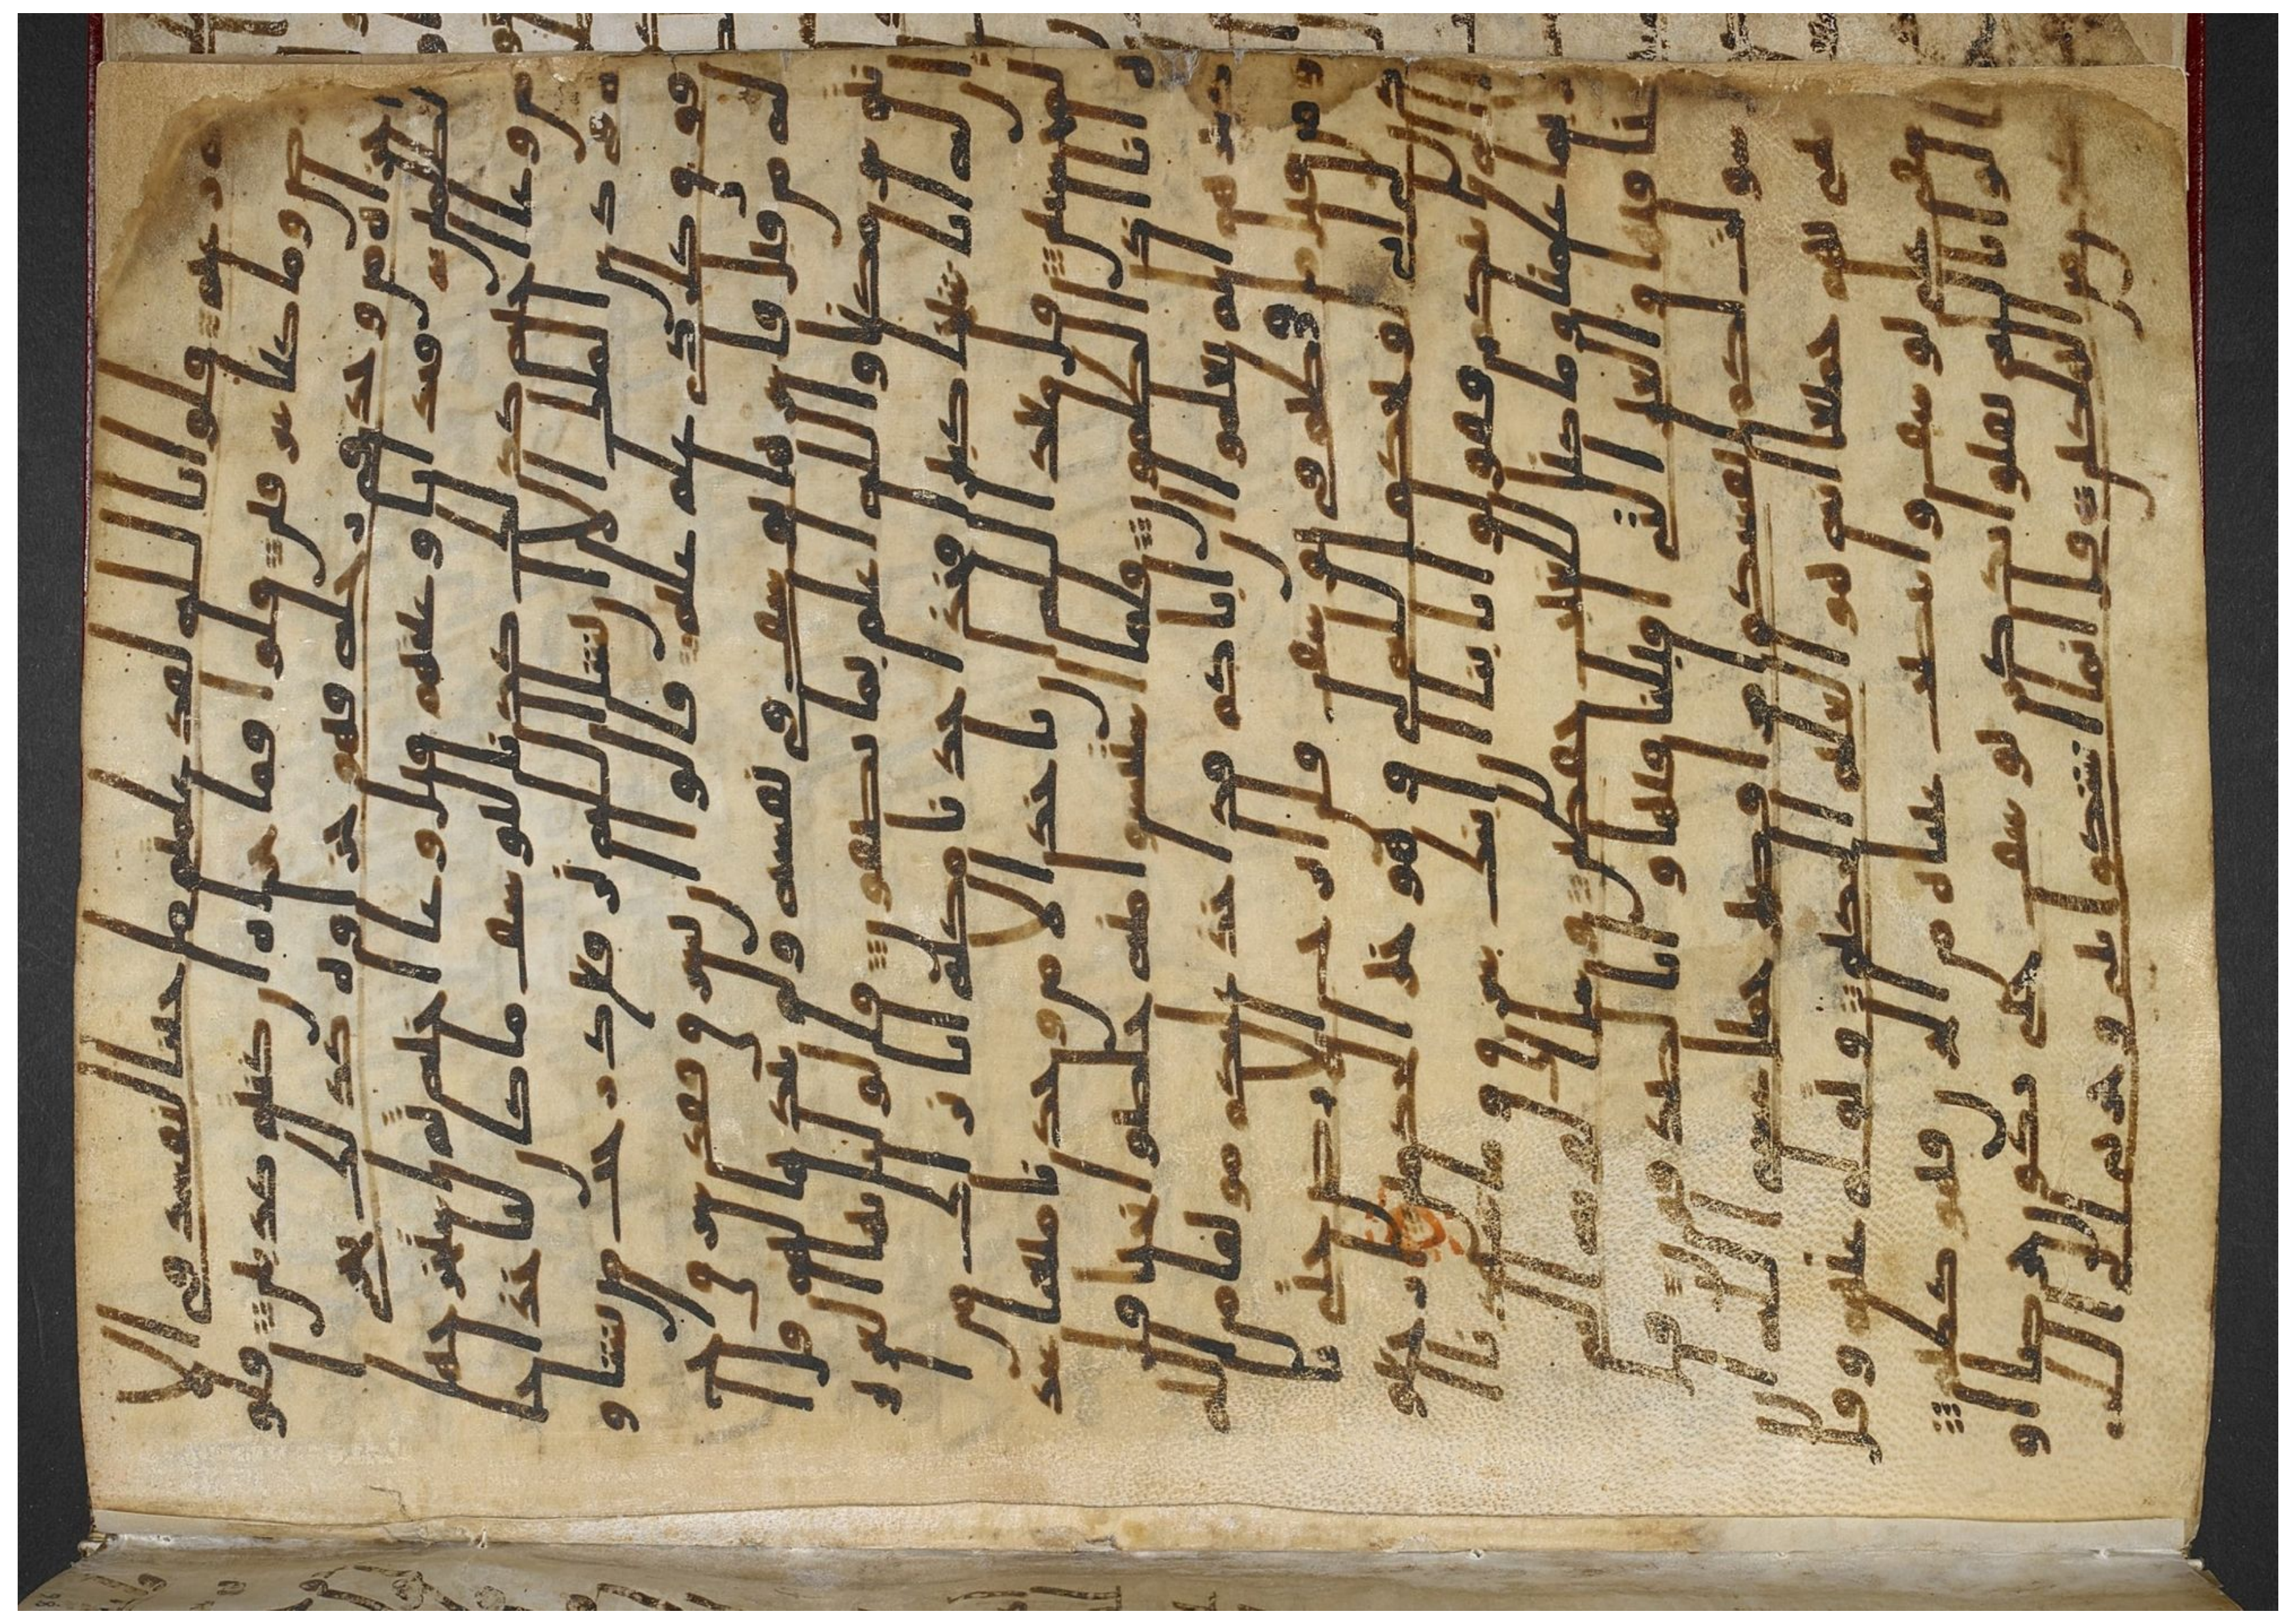 قلوا تالله لقد علمتم ما جينا لنفسد في الا
رض وما كنا سرقين قلوا فما جزاوه ان كنتم كذبين قلو
ا جزاوه من وجد في رحله فهو جزاوه كذلك نجزي
الظلمين فبدا باوعيتهم قبل وعا اخيه ثم استخرجها
من وعا اخيه كذلك كدنا ليوسف ما كان لياخذ ا
خاه في دين الملك الا ان يشا الله نرفع درجت من نشا و
فوق كل ذي علم عليم قالوا ان يسرق فقد سرق ا
خ له من قبل فاسرها يوسف في نفسه ولم يبدها لهم قل ا
نتم شر مكنا والله اعلم بما تصفون قلوا يايها العز
يز ان له ابا شيخا كبيرا فخذ احدنا مكنه انا نريك من ا
لمحسنين قل معذ الله ان ناخذ الا من وجدنا متعنا عند
ه انا اذا لظلمون فلما استيسوا منه خلصوا نجيا قل
كبيرهم الم تعلموا ان اباكم قد اخذ عليكم موثقا من الله
ومن قبل ما فرطتم في يوسف فلن ابرح الارض حتى
ياذن لي ابي او يحكم الله لي وهو خير الحكمين ارجعو
ا الى ابيكم فقولوا يابنا ان ابنك سرق وما شهدنا ا
لا بما علمنا وما كنا للغيب حفظين وسل القرية التي
كنا فيها والعير التي اقبلنا فيها وانا لصدقون قل
بل سولت لكم انفسكم امرا فصبر جميل عسى الله ان
بهم جميعا انه هو العليم الحكيم وتولى عنهم وقل
على يوسف وابيضت عينه من الحزن فهو كظيم
قلوا تالله تفتوا تذكر يوسف حتى تكون حرضا او
تكون من الهلكين قل انما اشكوا بثي وحزني الى الله